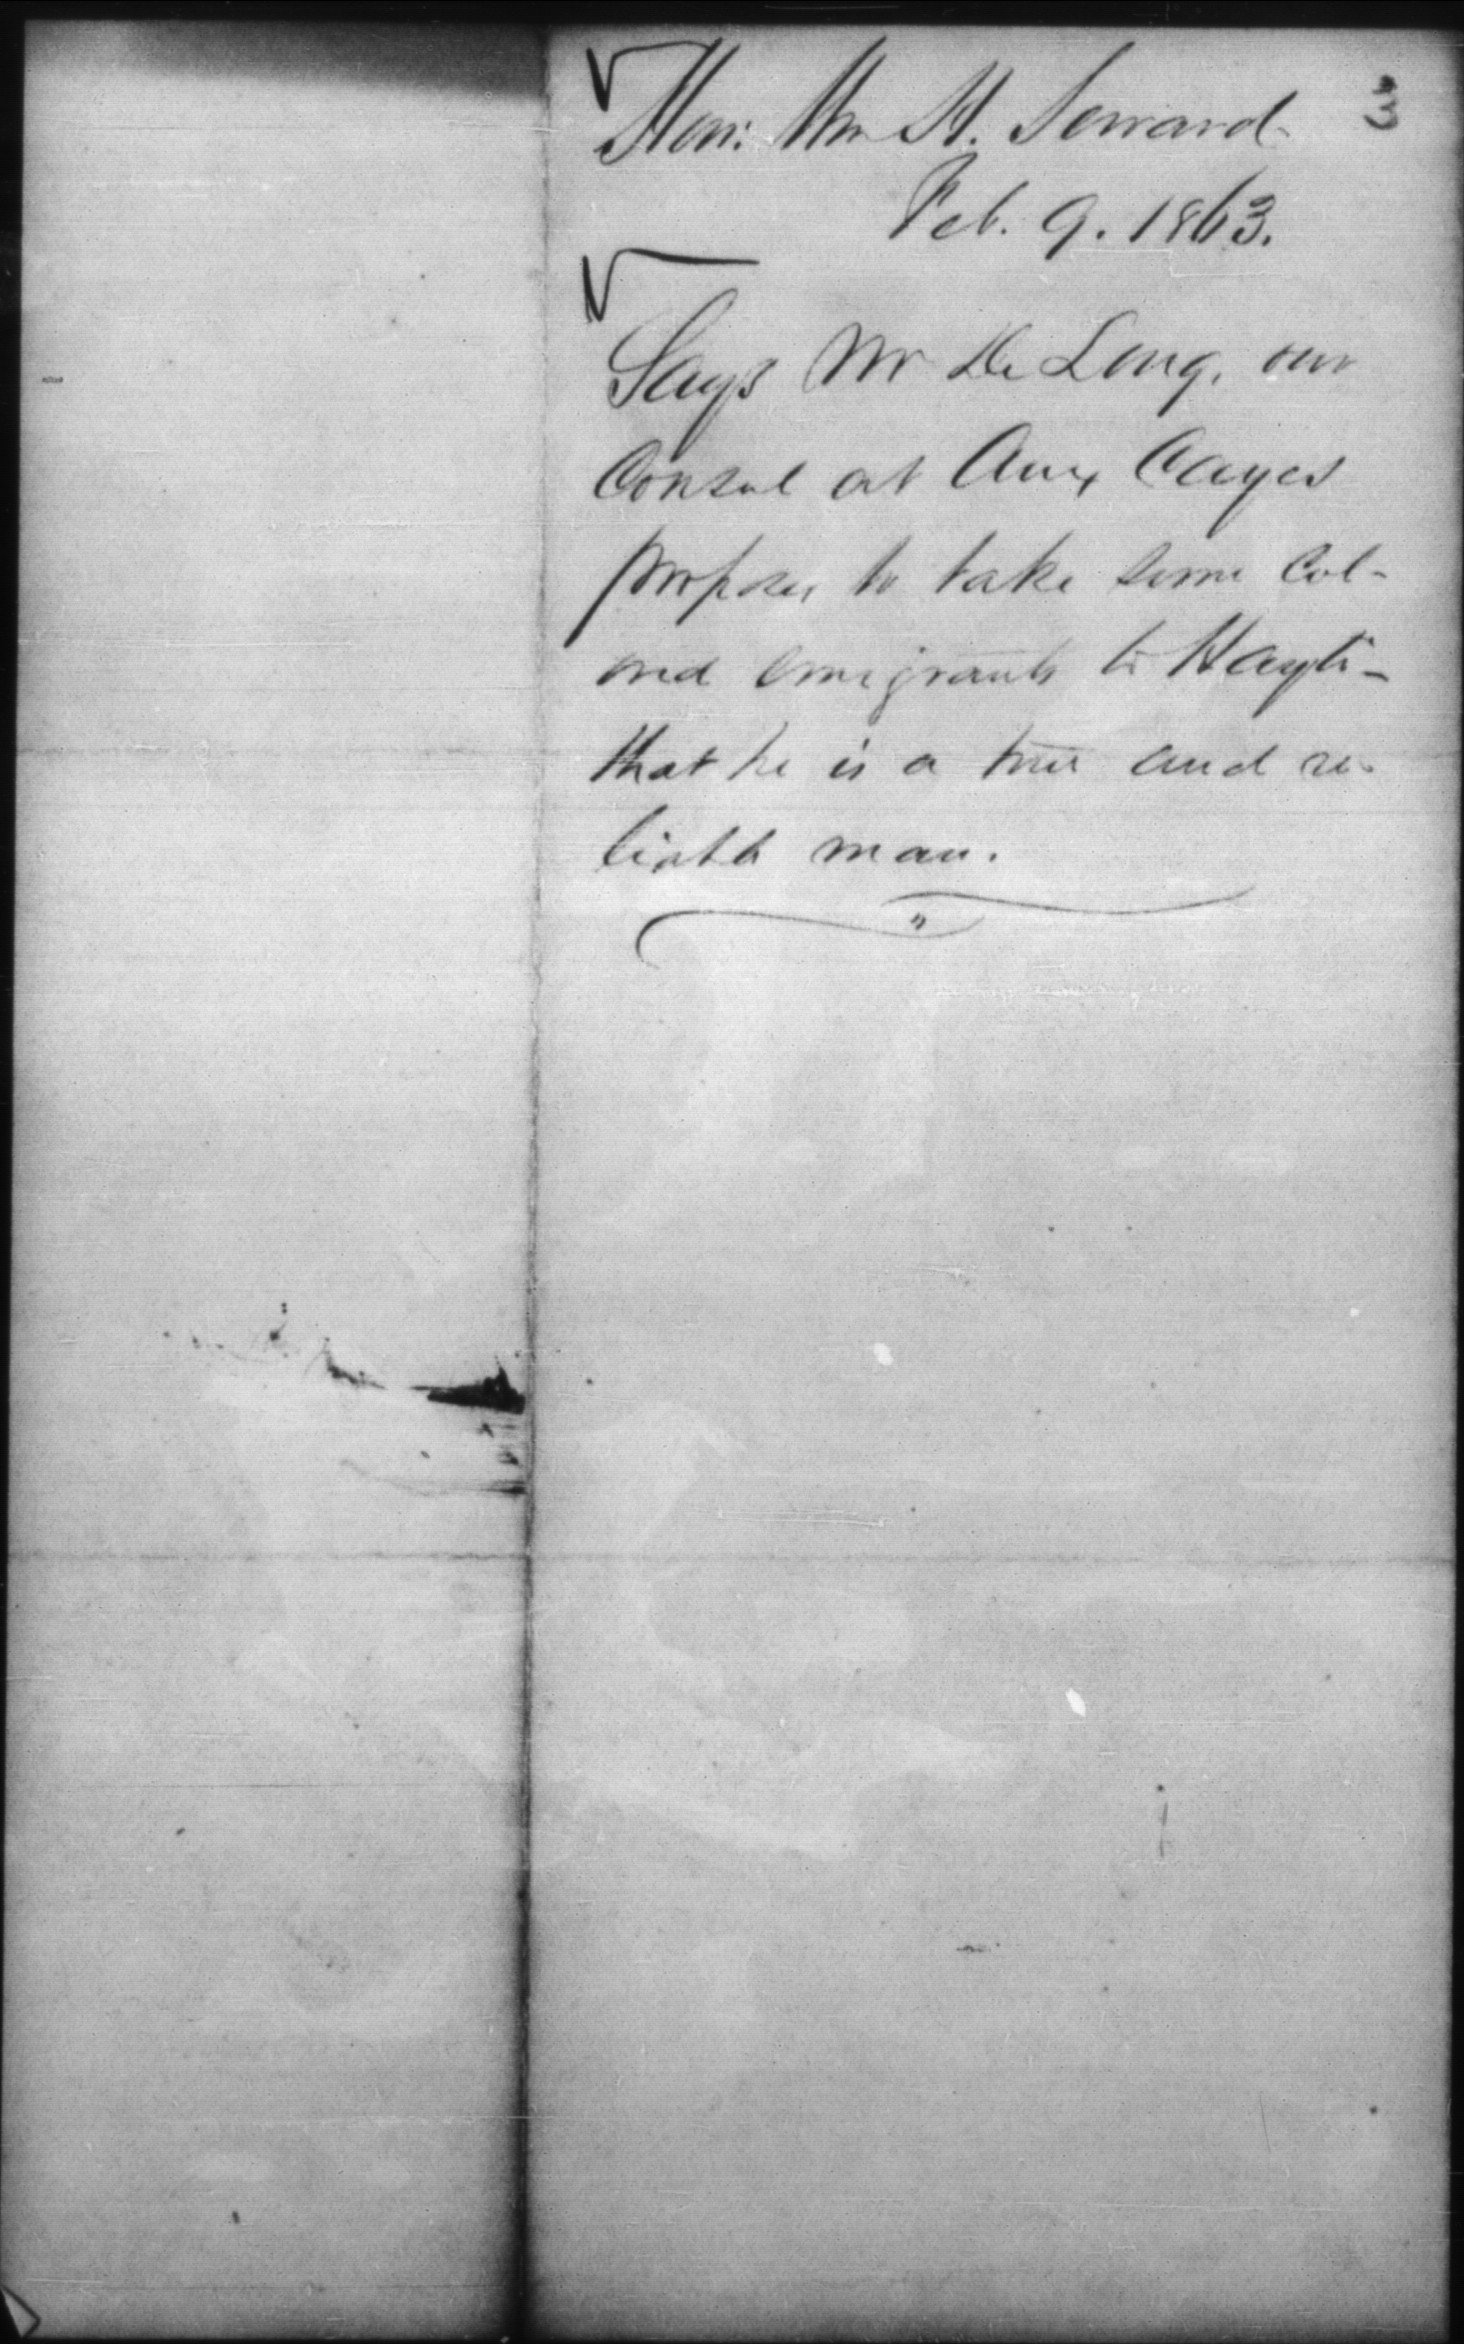 3
Hon: Wm H. Seward
Feb. 9. 1863.
Says Mr De Long, our
Consul at Aux Cayes
proposes to take some col-
ored emigrants to Hayti-
that he is a true and re-
liable man.